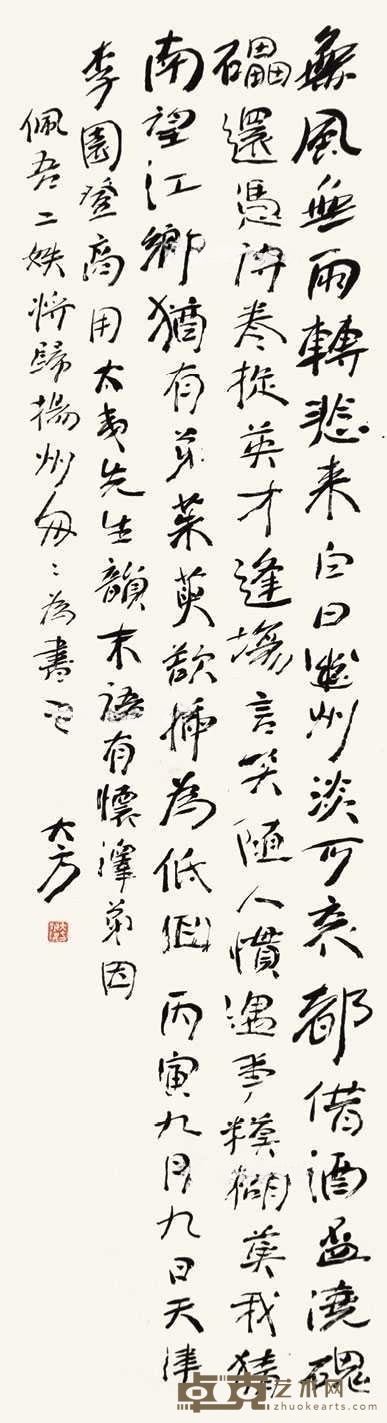 無風無雨轉悲來白日幽州淡可哀都借酒盃澆磈
礧還憑詩卷英才逢場言笑隨人慣遇事糢糊莫我猜
南望江鄉猶有弟茱萸欲插為低徊 丙寅九月九日天津
李園登高用太夷先生韻末語有懷澤弟因
佩吾二妷將歸揚州匆〻為書 大方
卓克艺术网
zhuokearts.com